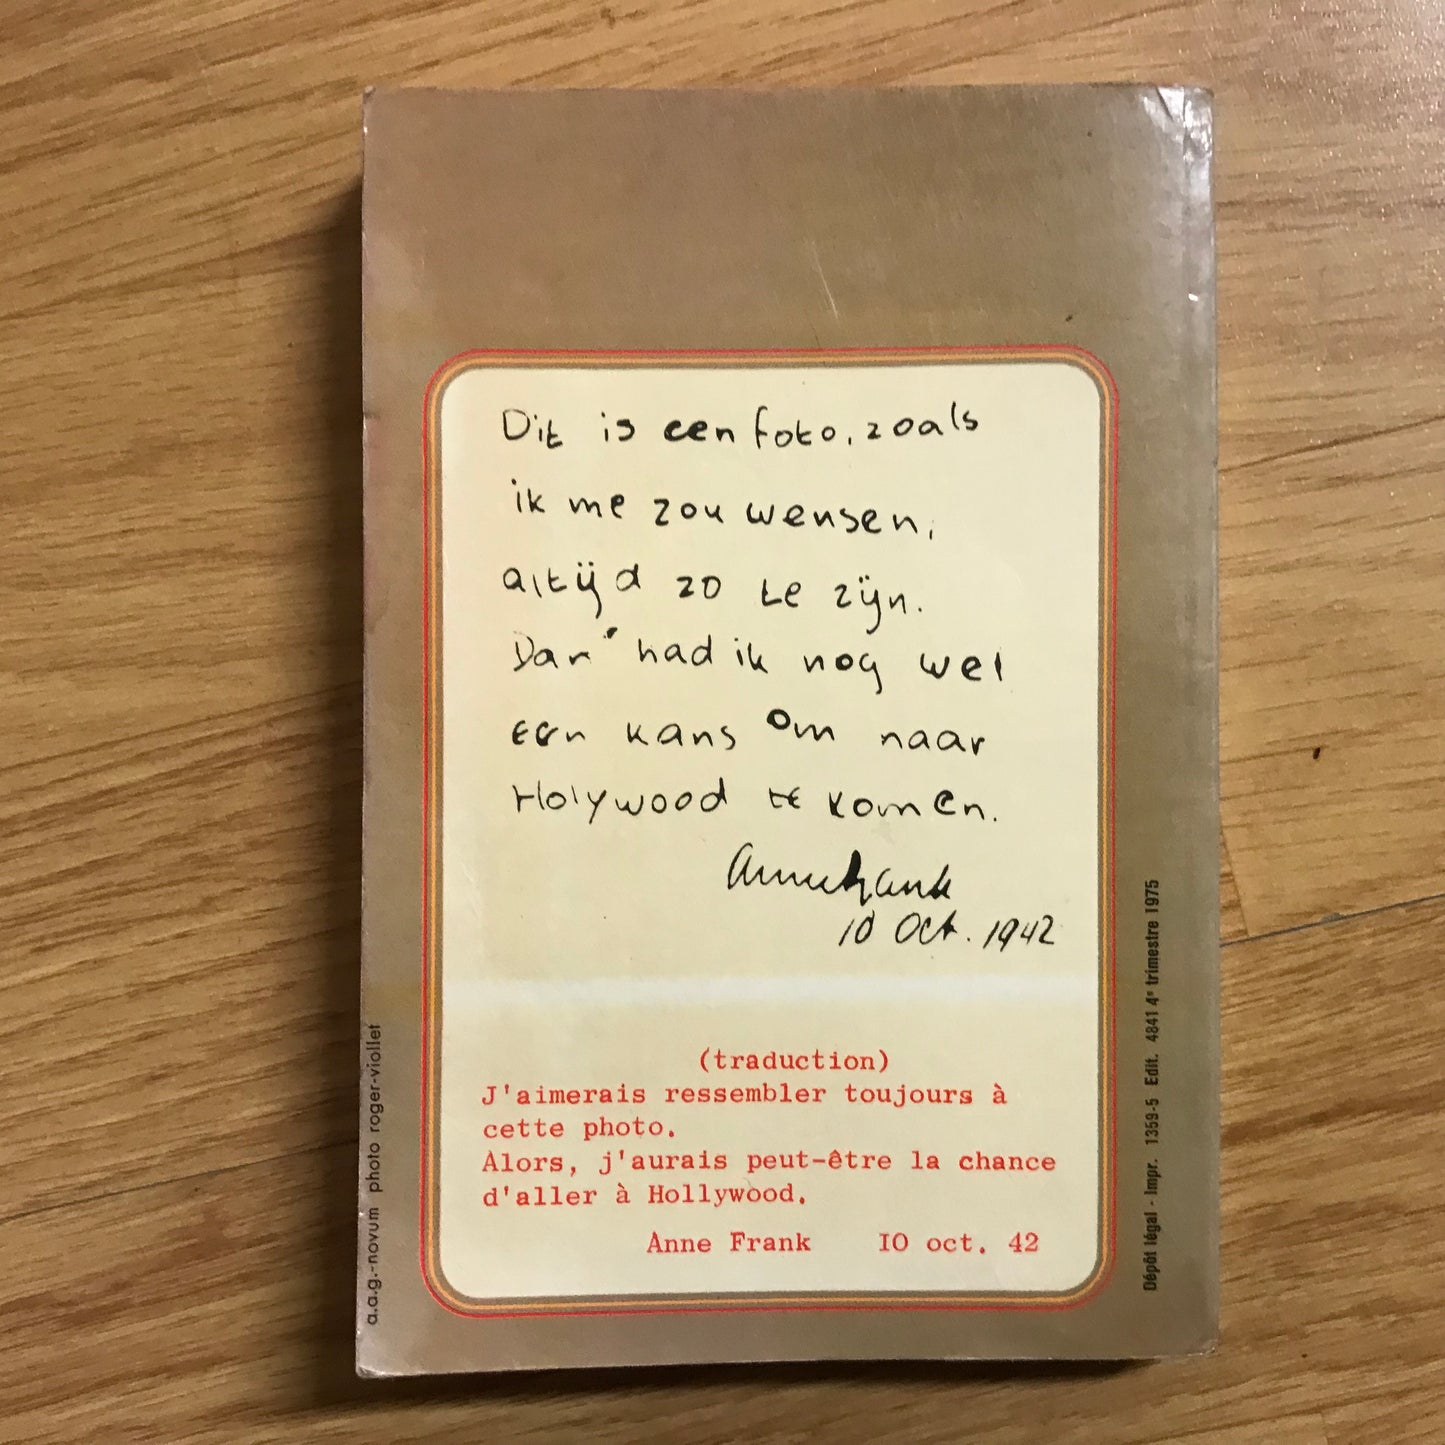 Dit is een foto, zoals
ik me zou wensen,
altijd zo te zijn.
Dan had ik nog wel
een kans om naar
Holywood te komen.
Annefrank
10 Oct. 1942
(traduction)
J'aimerais ressembler toujours à
cette photo.
Alors, j'aurais peut-être la chance
d'aller à Hollywood.
Anne Frank IO oct. 42
a.a.g.-novum photo roger-viollet
Dépôt légal - Impr. 1359-5 Edit. 4841 4e trimestre 1975